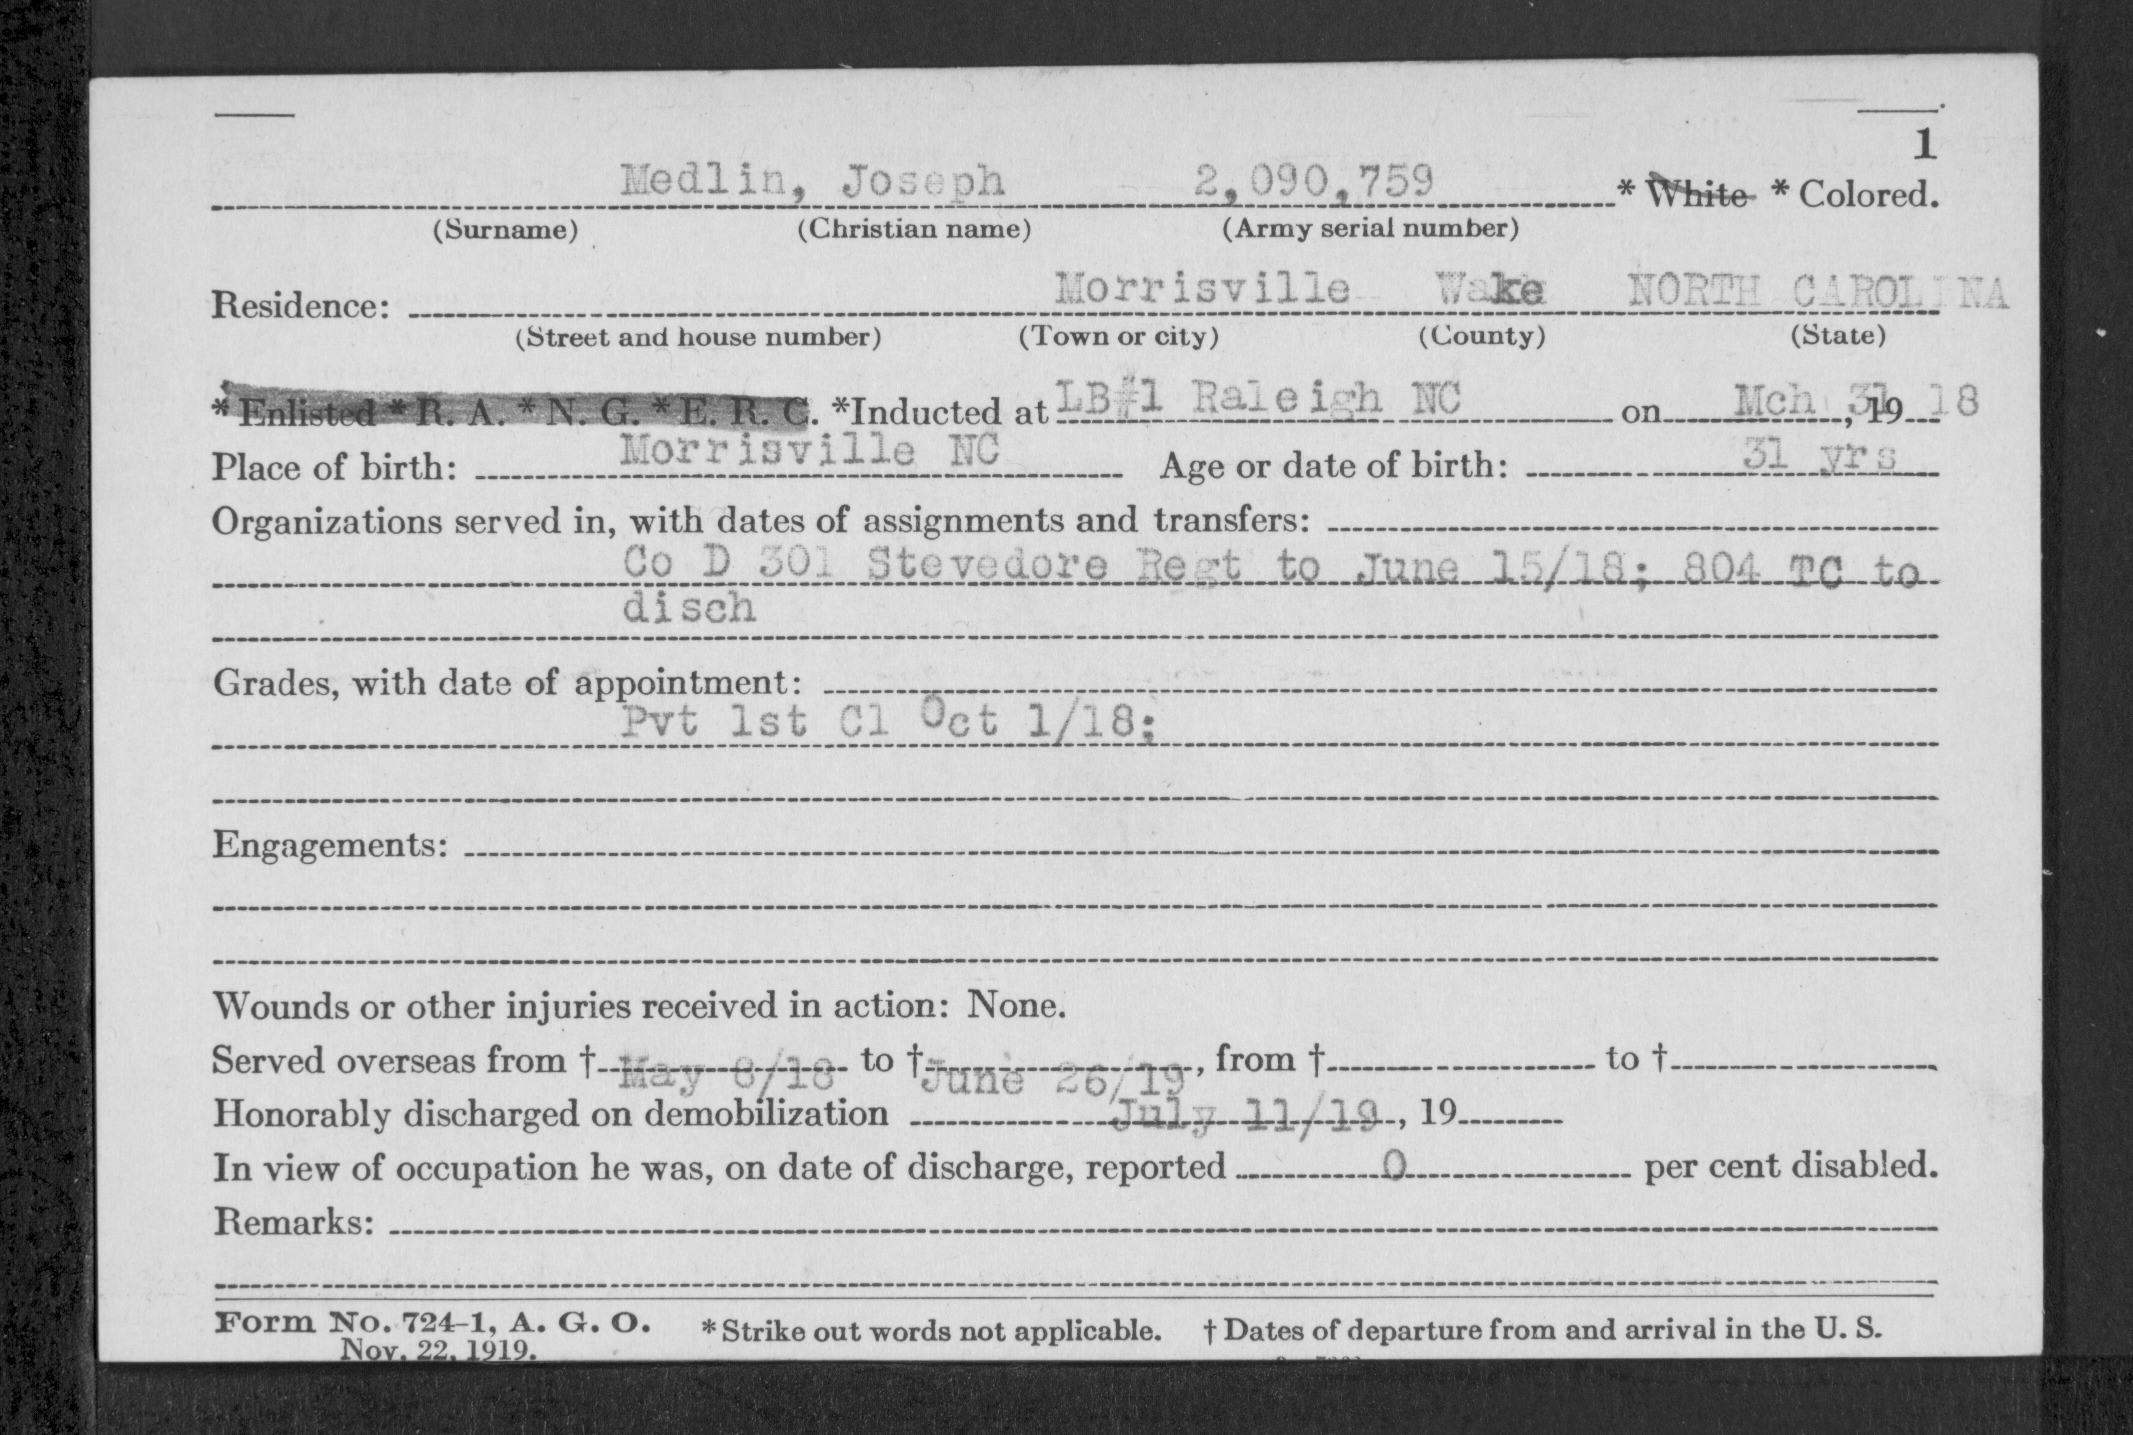 1
Medlin, Joseph 2,090,759 * White * Colored.
(Surname) (Christian name) (Army serial number)
Residence: Morrisville Wake NORTH CAROLINA
(Street and house number) (Town or city) (County) (State)
* Enlisted * R. A. * N. G. * E. R. C. *Inducted at LB#1 Raleigh NC on Mch 31, 19 18
Place of birth: Morrisville NC Age or date of birth: 31 yrs
Organizations served in, with dates of assignments and transfers:
Co D 301 Stevedore Regt to June 15/18; 804 TC to
disch
Grades, with date of appointment:
Pvt 1st Cl Oct 1/18;
Engagements:
Wounds or other injuries received in action: None.
Served overseas from † May 8/18 to † June 26/19, from † to †
Honorably discharged on demobilization July 11/19, 19
In view of occupation he was, on date of discharge, reported 0 per cent disabled.
Remarks:
Form No. 724-1, A. G. O. * Strike out words not applicable. † Dates of departure from and arrival in the U. S.
Nov. 22, 1919.